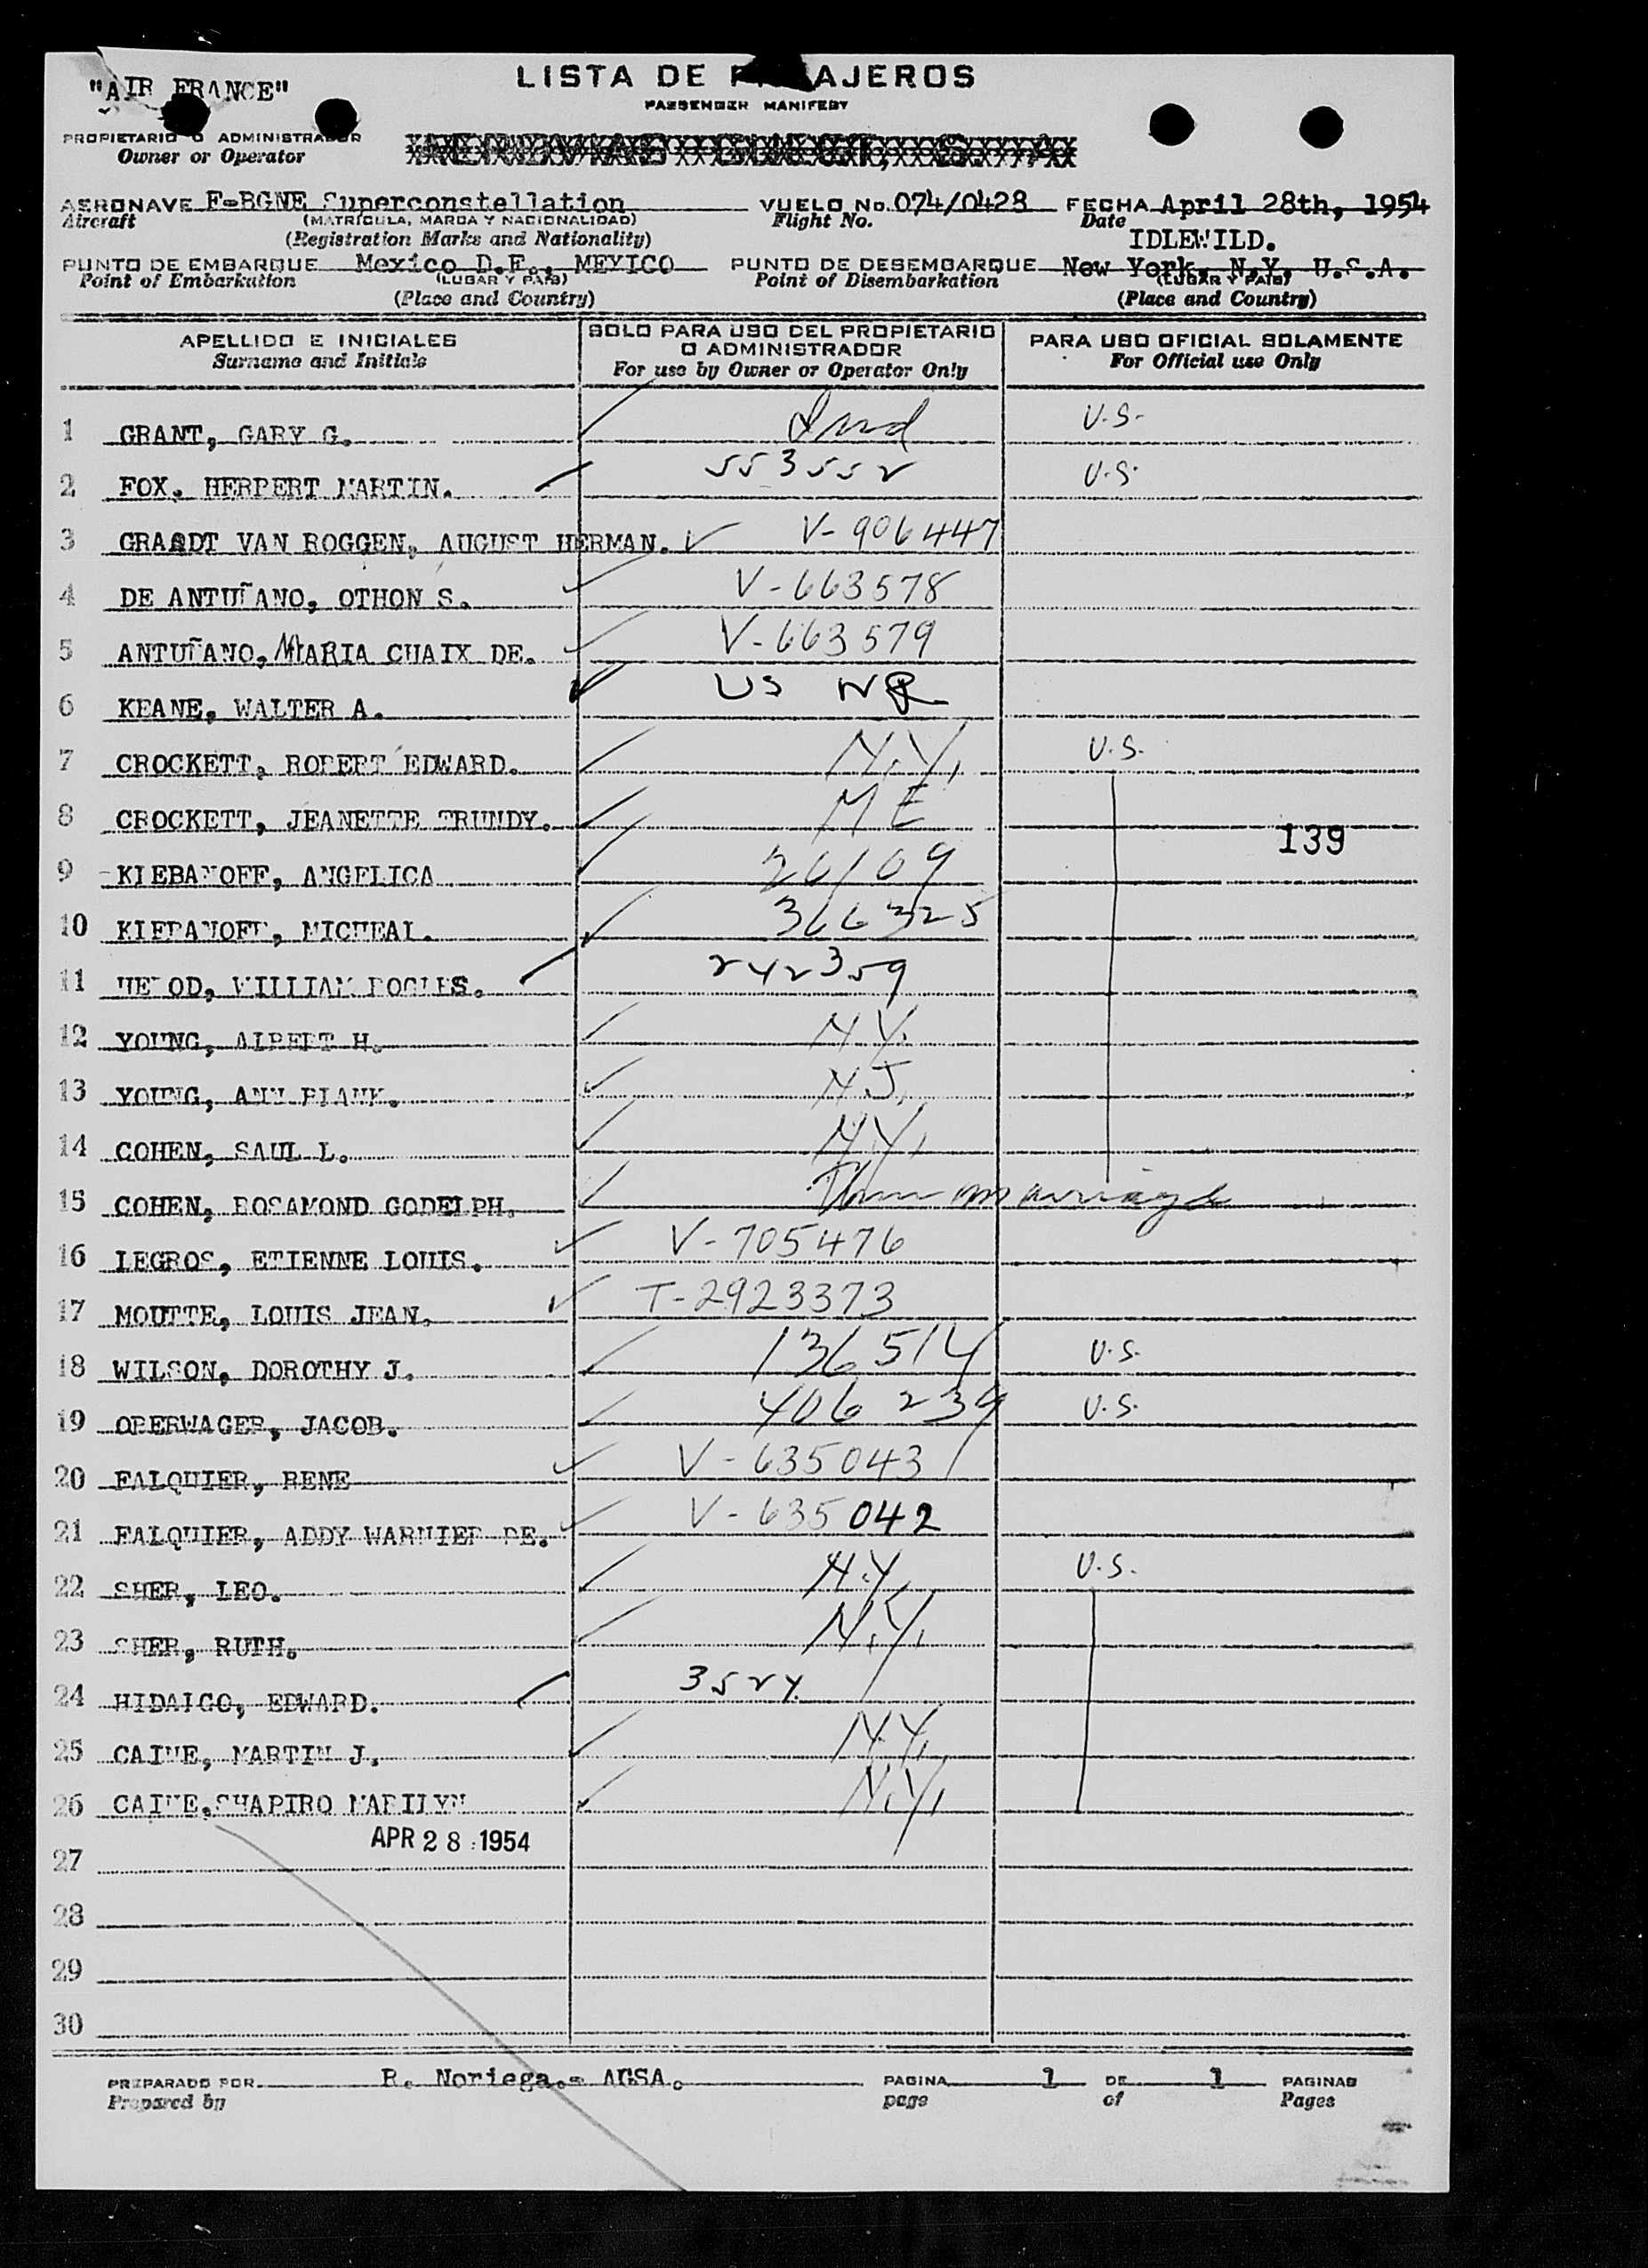 "AIR FRANCE"
LISTA DE AJEROS
PASSENGER MANIFEST
PROPIETARIO O ADMINISTRADOR
Owner or Operator
AERONAVE F-BGNE Superconstellation VUELO No. 074/0428 FECHA April 28th, 1954
Aircraft (MATRÍCULA, MARCA Y NACIONALIDAD) Flight No. Date
(Registration Marks and Nationality) IDLEWILD.
PUNTO DE EMBARQUE Mexico D.F., MEXICO PUNTO DE DESEMBARQUE New York, N.Y. U.S.A.
Point of Embarkation (LUGAR Y PAÍS) Point of Disembarkation (LUGAR Y PAÍS)
(Place and Country) (Place and Country)
APELLIDO E INICIALES SOLO PARA USO DEL PROPIETARIO O ADMINISTRADOR PARA USO OFICIAL SOLAMENTE
Surname and Initials For use by Owner or Operator Only For Official use Only
1 GRANT, GARY G. Ind U.S.
2 FOX, HERBERT MARTIN. 553552 U.S.
3 GRAADT VAN ROGGEN, AUGUST HERMAN. V-906447
4 DE ANTUÑANO, OTHON S. V-663578
5 ANTUÑANO, MARIA CHAIX DE. V-663579
6 KEANE, WALTER A. US NR
7 CROCKETT, ROBERT EDWARD. N.Y. U.S.
8 CROCKETT, JEANETTE TRUNDY. ME
139
9 KIEBANOFF, ANGELICA 26109
10 KIEBANOFF, MICHEAL. 366325
11 WILLIAM 242359
12 YOUNG, ALBERT H. N.Y.
13 YOUNG, ANN BLANK. N.J.
14 COHEN, SAUL L. N.Y.
15 COHEN, ROSAMOND GODELPH. Thru marriage
16 LEGROS, ETIENNE LOUIS. V-705476
17 MOUTTE, LOUIS JEAN. T-2923373
18 WILSON, DOROTHY J. 136514 U.S.
19 OBERWAGER, JACOB. 406239 U.S.
20 FALQUIER, RENE V-635043
21 FALQUIER, ADDY WARNIER DE. V-635042
22 SHER, LEO. N.Y. U.S.
23 SHER, RUTH. N.Y.
24 HIDALGO, EDWARD. 3524
25 CAINE, MARTIN J. N.Y.
26 CAINE, SHAPIRO MARILYN N.Y.
APR 28 1954
27
28
29
30
PREPARADO POR R. Noriega.- AGSA. PAGINA 1 DE 1 PAGINAS
Prepared by page of Pages